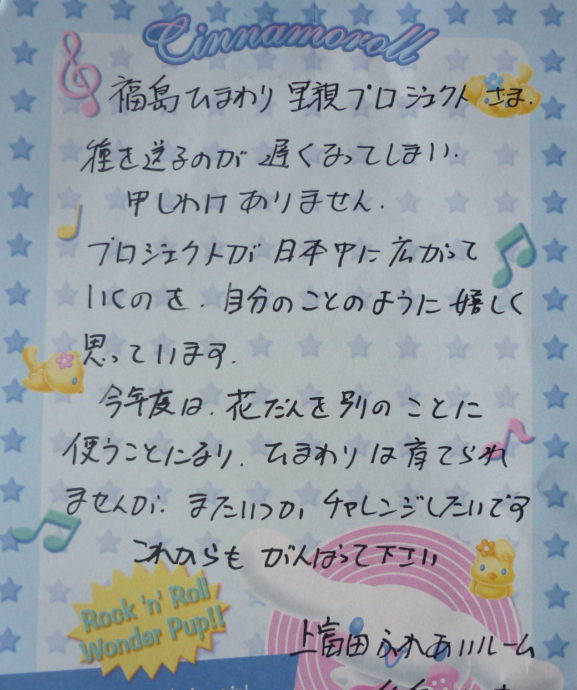 Cinnamoroll
福島ひまわり里親プロジェクトさま.
種を送るのが遅くなってしまい.
申しわけありません.
プロジェクトが日本中に広がって
いくのを.自分のことのように嬉しく
思っています.
今年度は.花だんを別のことに
使うことになり.ひまわりは育てられ
ませんが.またいつかチャレンジしたいです
これからもがんばって下さい
Rock 'n' Roll
Wonder Pup!!
上富田ふれあいルーム